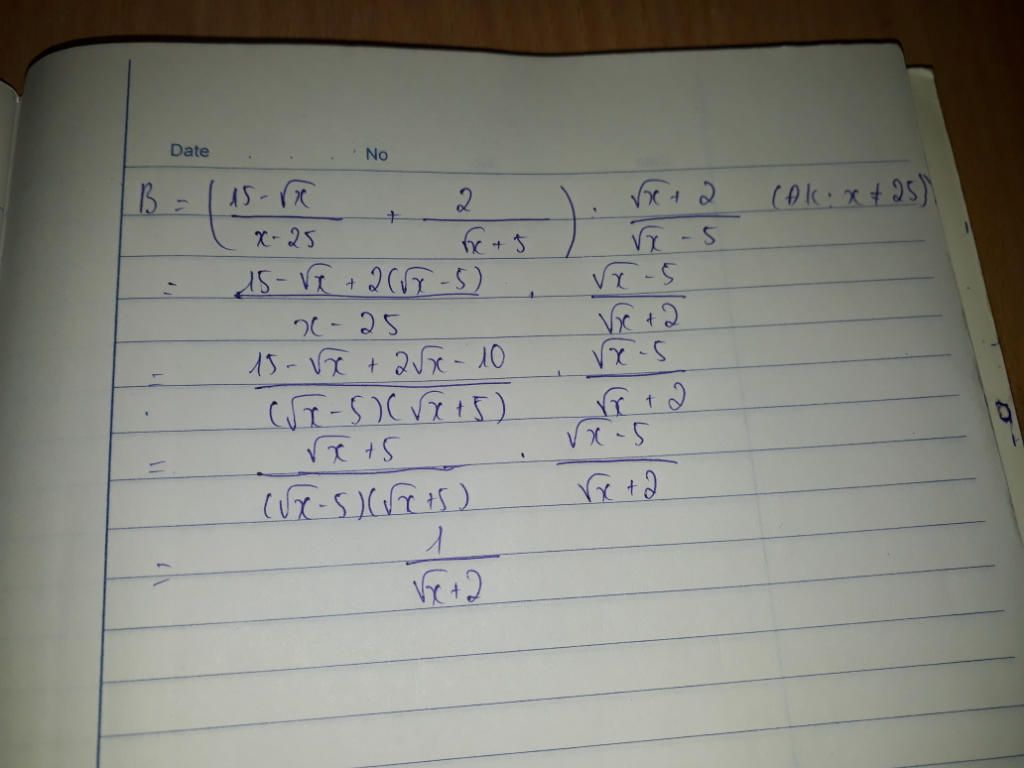 Date . . . . No
B = ( (15 - √x)/(x - 25) + 2/(√x + 5) ) . (√x + 2)/(√x - 5) (ĐK: x ≠ 25)
= (15 - √x + 2(√x - 5))/(x - 25) . (√x - 5)/(√x + 2)
= (15 - √x + 2√x - 10)/((√x - 5)(√x + 5)) . (√x - 5)/(√x + 2)
= (√x + 5)/((√x - 5)(√x + 5)) . (√x - 5)/(√x + 2)
= 1/(√x + 2)